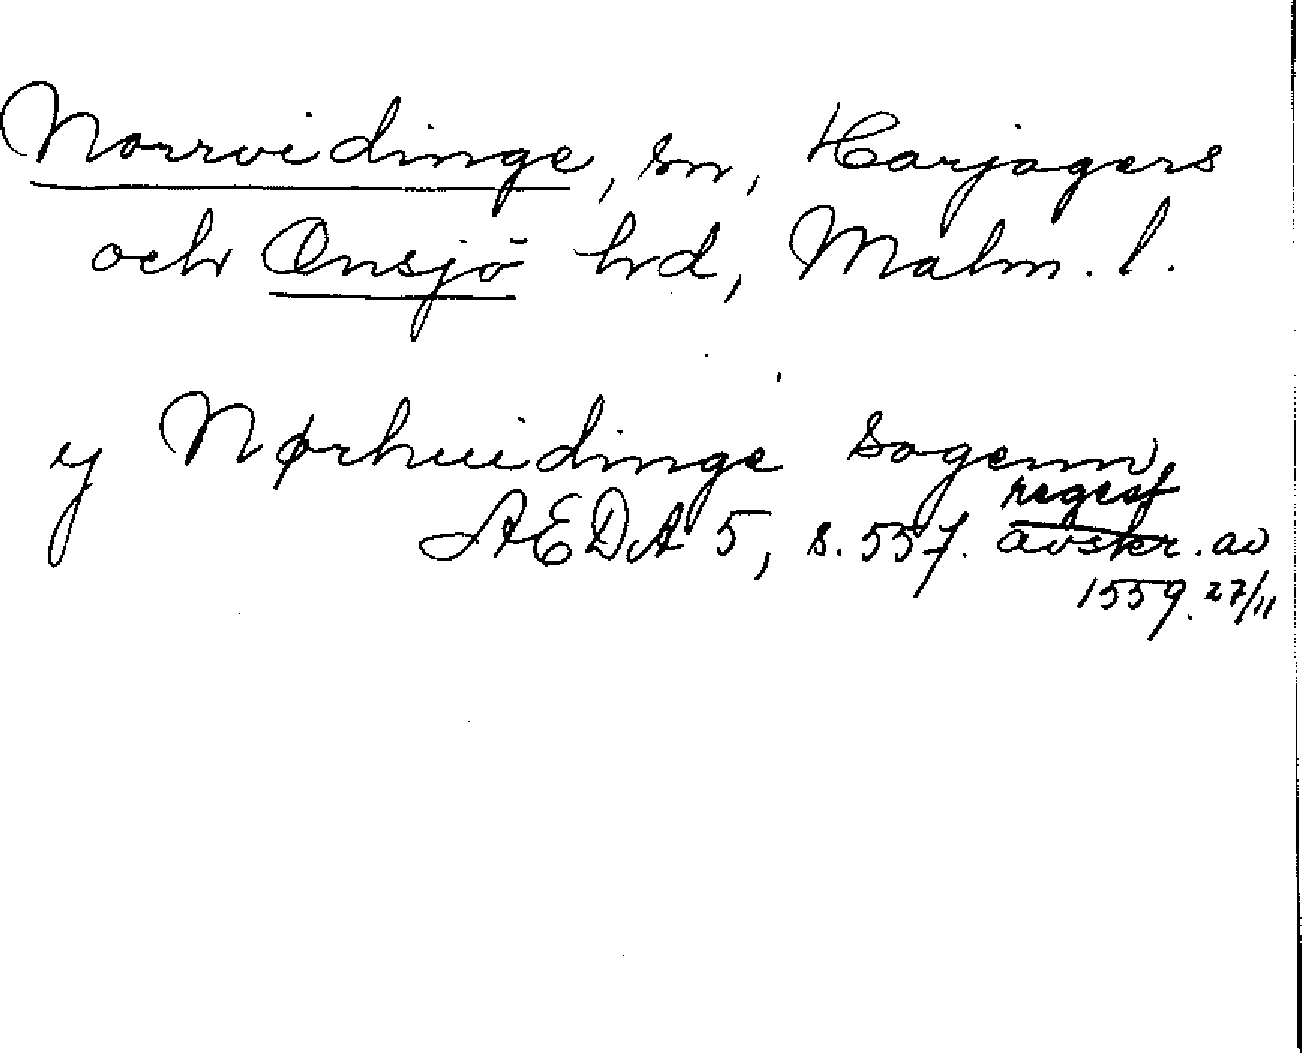 Norrvidinge, sn, Harjagers
och Onsjö hd, Malm. l.
y Nørhuidinge Sogenn,
regest
AEDA 5, s. 557. avskr. av
1559. 27/11